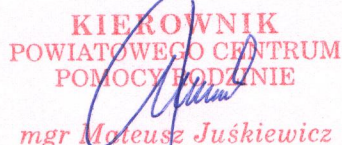 KIEROWNIK
POWIATOWEGO CENTRUM
POMOCY RODZINIE
mgr Mateusz Juśkiewicz